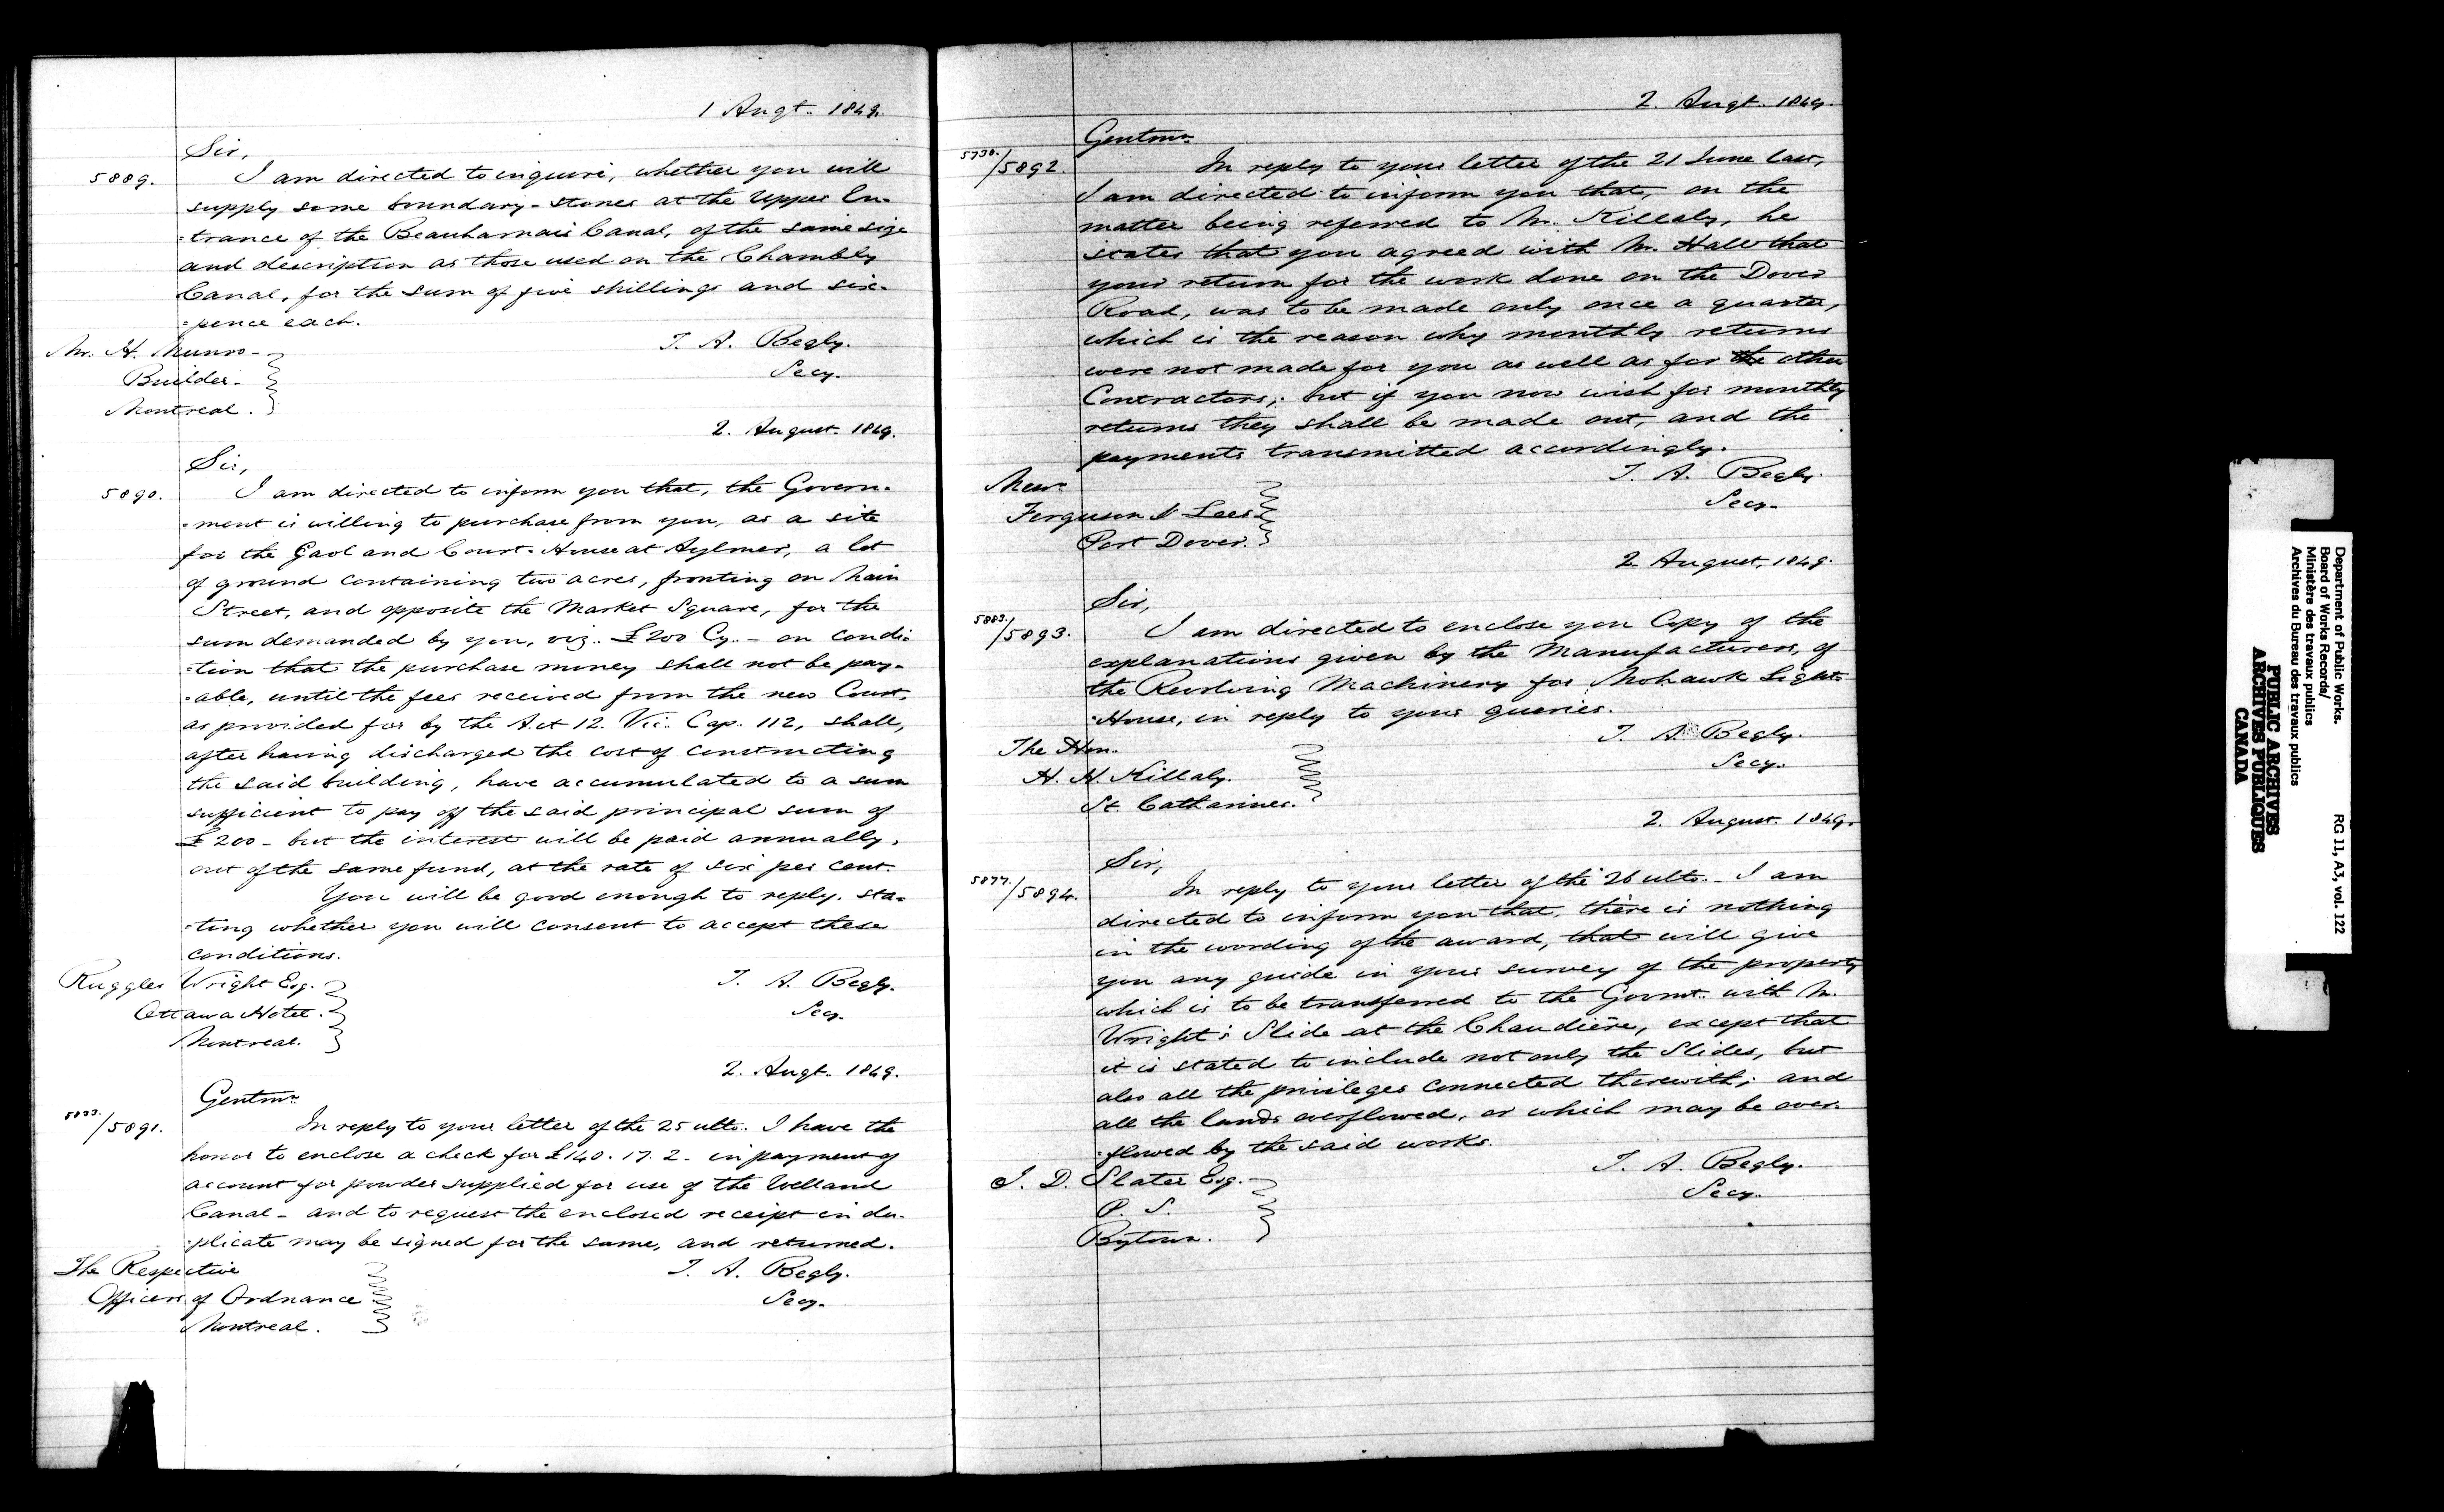 1 Augt. 1849.
Sir,
5889. I am directed to inquire, whether you will
supply some boundary-stones at the Upper En-
-trance of the Beauharnais Canal, of the same size
and description as those used on the Chambly
Canal, for the sum of five shillings and six-
-pence each.
T. A. Begly.
Secy.
Mr. H. Munro
Builder.
Montreal.
2. August. 1849.
Sir,
5890. I am directed to inform you that, the Govern-
-ment is willing to purchase from you, as a site
for the Gaol and Court-House at Aylmer, a lot
of ground containing two acres, fronting on Main
Street, and opposite the Market Square, for the
sum demanded by you, viz.. £200 Cy. - on condi-
-tion that the purchase money shall not be pay-
-able, until the fees received from the new Court,
as provided for by the Act 12. Vic. Cap. 112, shall,
after having discharged the cost of constructing
the said building, have accumulated to a sum
sufficient to pay off the said principal sum of
£200 - but the interest will be paid annually,
out of the same fund, at the rate of six per cent.
You will be good enough to reply, sta-
-ting whether you will consent to accept these
conditions.
T. A. Begly.
Secy.
Ruggles Wright Esq.
Ottawa Hotel.
Montreal.
2. Augt. 1849.
Gentmn.
/5891. In reply to your letter of the 25 ulto. I have the
honor to enclose a check for £140. 17. 2 - in payment of
account for powder supplied for use of the Welland
Canal - and to request the enclosed receipt in du-
-plicate may be signed for the same, and returned.
T. A. Begly.
Secy.
The Respective
Officers of Ordnance
Montreal.
2. Augt. 1849.
Gentmn.
5730./5892. In reply to your letter of the 21 June last,
I am directed to inform you that, on the
matter being referred to Mr. Killaly, he
states that you agreed with Mr. Hall that
your return for the work done on the Dover
Road, was to be made only once a quarter,
which is the reason why monthly returns
were not made for you as well as for the other
Contractors; but if you now wish for monthly
returns they shall be made out, and the
payments transmitted accordingly.
T. A. Begly.
Secy.
Messrs.
Ferguson & Lees
Port Dover.
2. August, 1849.
Sir,
5883./5893. I am directed to enclose you Copy of the
explanations given by the Manufacturers, of
the Revolving Machinery for Mohawk Light-
-House, in reply to your queries.
T. A. Begly.
Secy.
The Hon.
H. H. Killaly.
St. Catharines.
2. August. 1849.
Sir,
5877./5894. In reply to your letter of the 26 ulto. - I am
directed to inform you that, there is nothing
in the wording of the award, that will give
you any guide in your survey of the property
which is to be transferred to the Govmt. with Mr.
Wright's Slide at the Chaudière, except that
it is stated to include not only the Slides, but
also all the privileges connected therewith; and
all the lands overflowed, or which may be over-
-flowed by the said works.
T. A. Begly.
Secy.
J. D. Slater Esq.
P. S.
Bytown.
Department of Public Works.
Board of Works Records/
Ministère des travaux publics
Archives du Bureau des travaux publics
RG 11, A3, vol. 122
PUBLIC ARCHIVES
ARCHIVES PUBLIQUES
CANADA